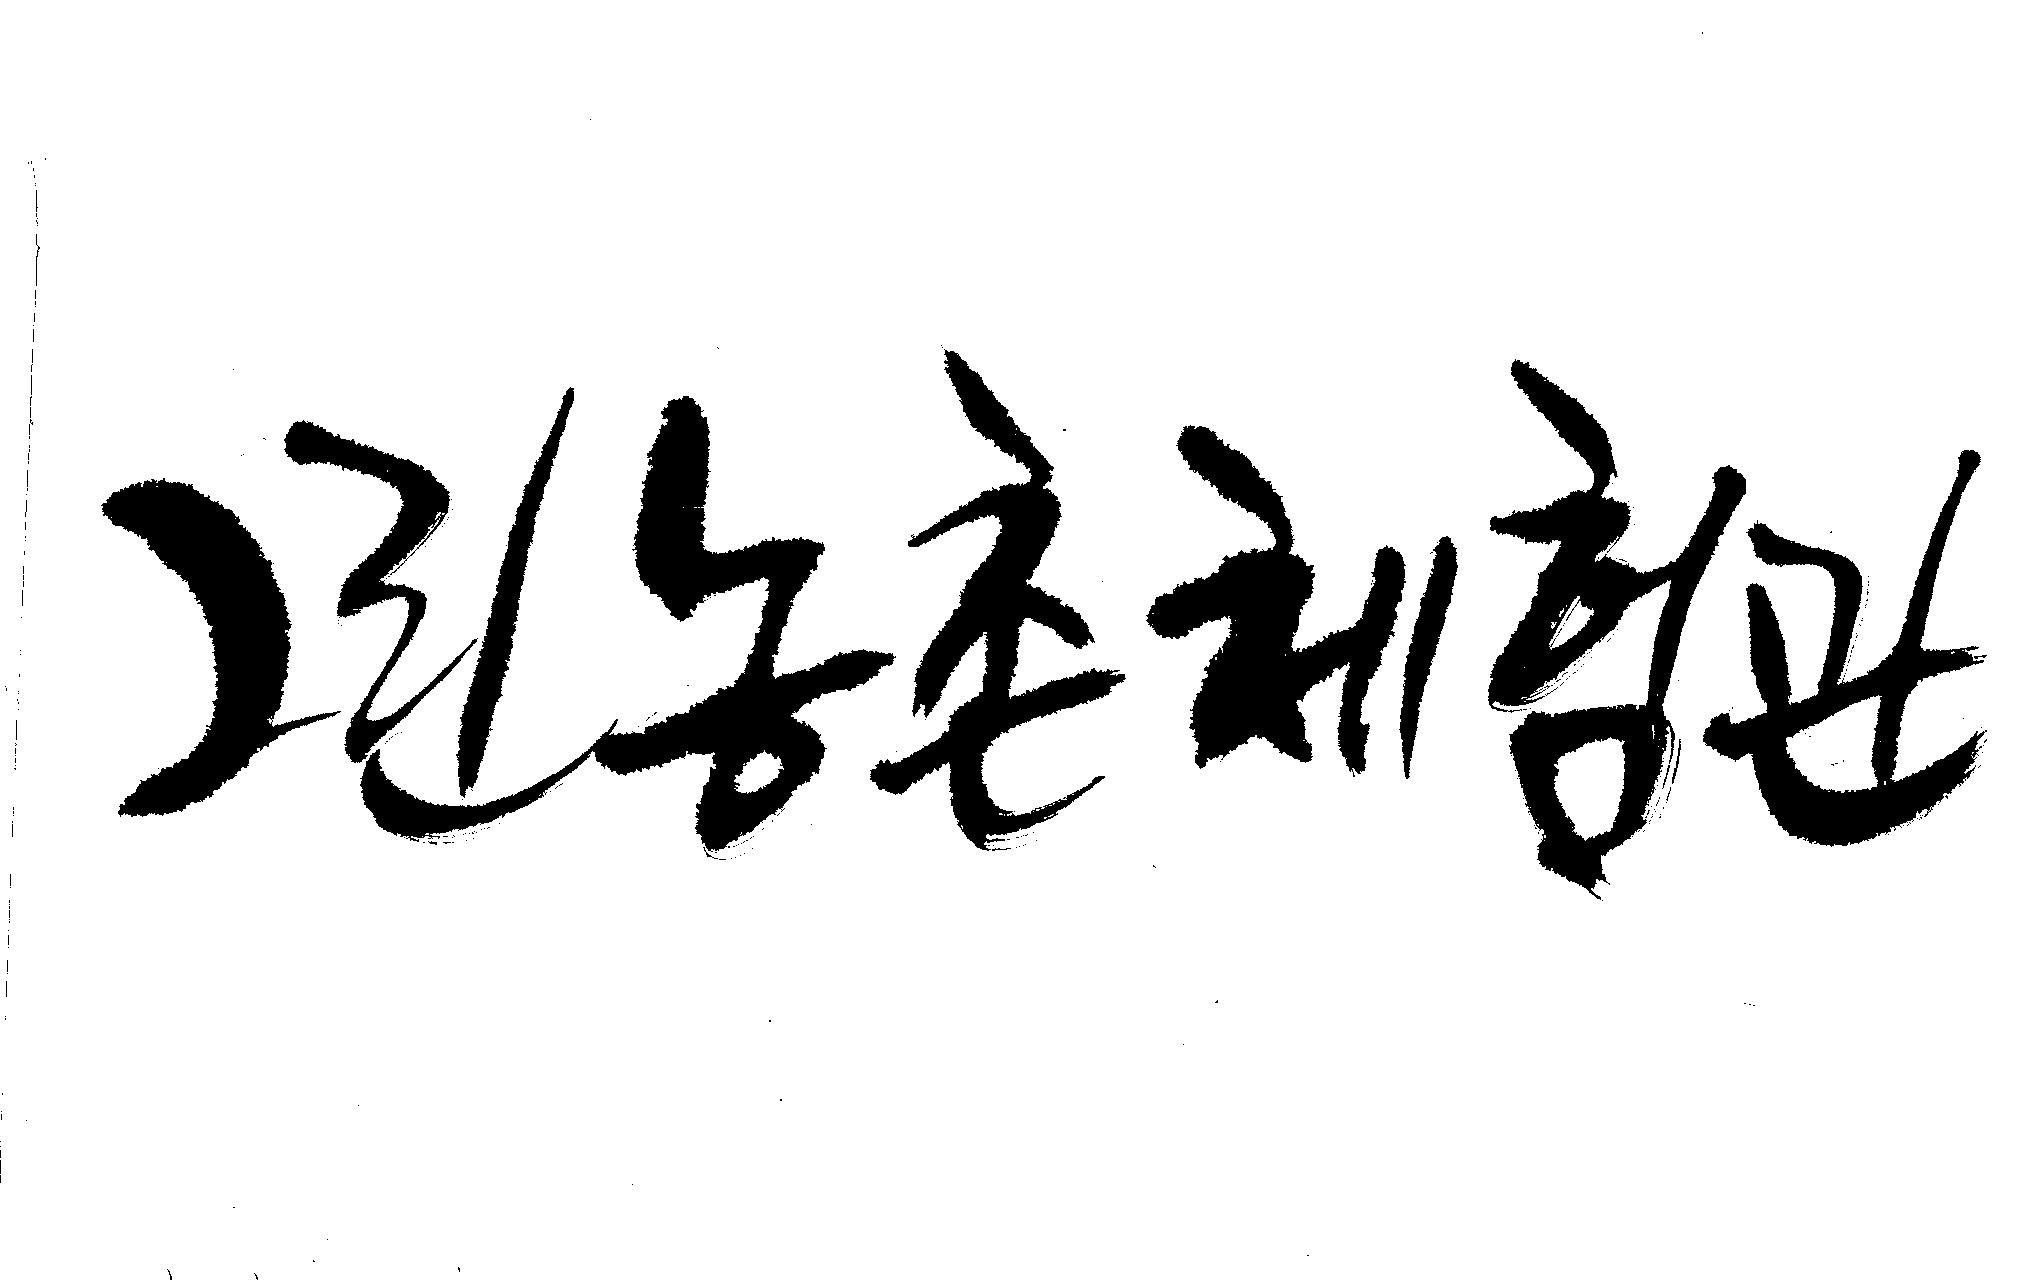 그린농촌체험관